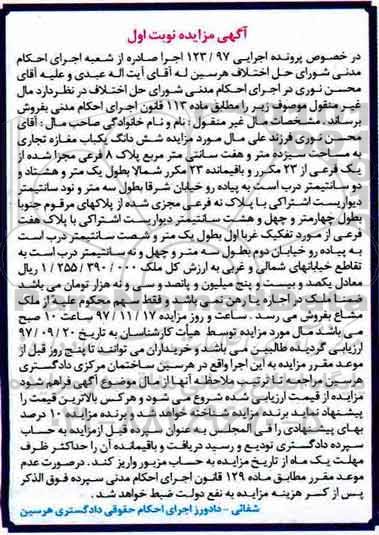 آگهی مزایده نوبت اول
در خصوص پرونده اجرایی ۹۷ / ۱۲۳ اجرا صادره از شعبه اجرای احکام
مدنی شورای حل اختلاف هرسین له آقای آیت اله عبدی و علیه آقای
محسن نوری در اجرای احکام مدنی شورای حل اختلاف در نظر دارد مال
غیر منقول موصوف زیر را مطابق ماده ۱۱۳ قانون اجرای احکام مدنی بفروش
برساند. مشخصات مال غیر منقول : نام و نام خانوادگی صاحب مال : آقای
محسن نوری فرزند علی مال مورد مزایده شش دانگ یکباب مغازه تجاری
به مساحت سیزده متر و هفت سانتی متر مربع پلاک ۸ فرعی مجزا شده از
یک فرعی از ۲۳ مکرر و باقیمانده ۲۳ مکرر شمالا بطول یک متر و هشتاد و
دو سانتیمتر درب است به پیاده رو خیابان شرقا بطول سه متر و نود سانتیمتر
دیواریست اشتراکی با پلاک نه فرعی مجزی شده از پلاکهای مرقوم جنوبا
بطول چهارمتر و چهل و هشت سانتیمتر دیواریست اشتراکی با پلاک هفت
فرعی از مورد تفکیک غربا اول بطول یک متر و شصت سانتیمتر درب است
به پیاده رو خیابان دوم بطول سه متر و چهل و نه سانتیمتر درب است به
تقاطع خیابانهای شمالی و غربی به ارزش کل ملک ۰۰۰ / ۳۹۰ / ۲۵۵ / ۱ ریال
معادل یکصد و بیست و پنج میلیون و پانصد و سی و نه هزار تومان می باشد
ضمنا ملک در اجاره یا رهن نمی باشد و فقط سهم محکوم علیه از ملک
مشاع بفروش می رسد . ساعت و روز مزایده ۱۷ / ۱۱ / ۹۷ ساعت ۱۰ صبح
می باشد مال مورد مزایده توسط هیأت کارشناسان به تاریخ ۲۰ / ۰۹ / ۹۷
ارزیابی گردیده طالبین می باشد و خریداران می توانند تا پنج روز قبل از
موعد مقرر مزایده به این اجرا واقع در هرسین ساختمان مرکزی دادگستری
هرسین مراجعه تا ترتیب ملاحظه آنها از مال موضوع آگهی فراهم شود
مزایده از قیمت ارزیابی شده شروع می شود و هرکس بالاترین قیمت را
پیشنهاد نماید برنده مزایده شناخته خواهد شد و برنده مزایده ۱۰ درصد
بهای پیشنهادی را فی المجلس به عنوان سپرده قبل از مزایده به حساب
سپرده دادگستری تودیع و رسید دریافت و باقیمانده آن را حداکثر ظرف
مهلت یک ماه از تاریخ مزایده به حساب مزبور واریز کند . درصورت عدم
موعد مقرر مطابق ماده ۱۲۹ قانون اجرای احکام مدنی سپرده فوق الذکر
پس از کسر هزینه مزایده به نفع دولت ضبط خواهد شد.
شفائی – دادورز اجرای احکام حقوقی دادگستری هرسین